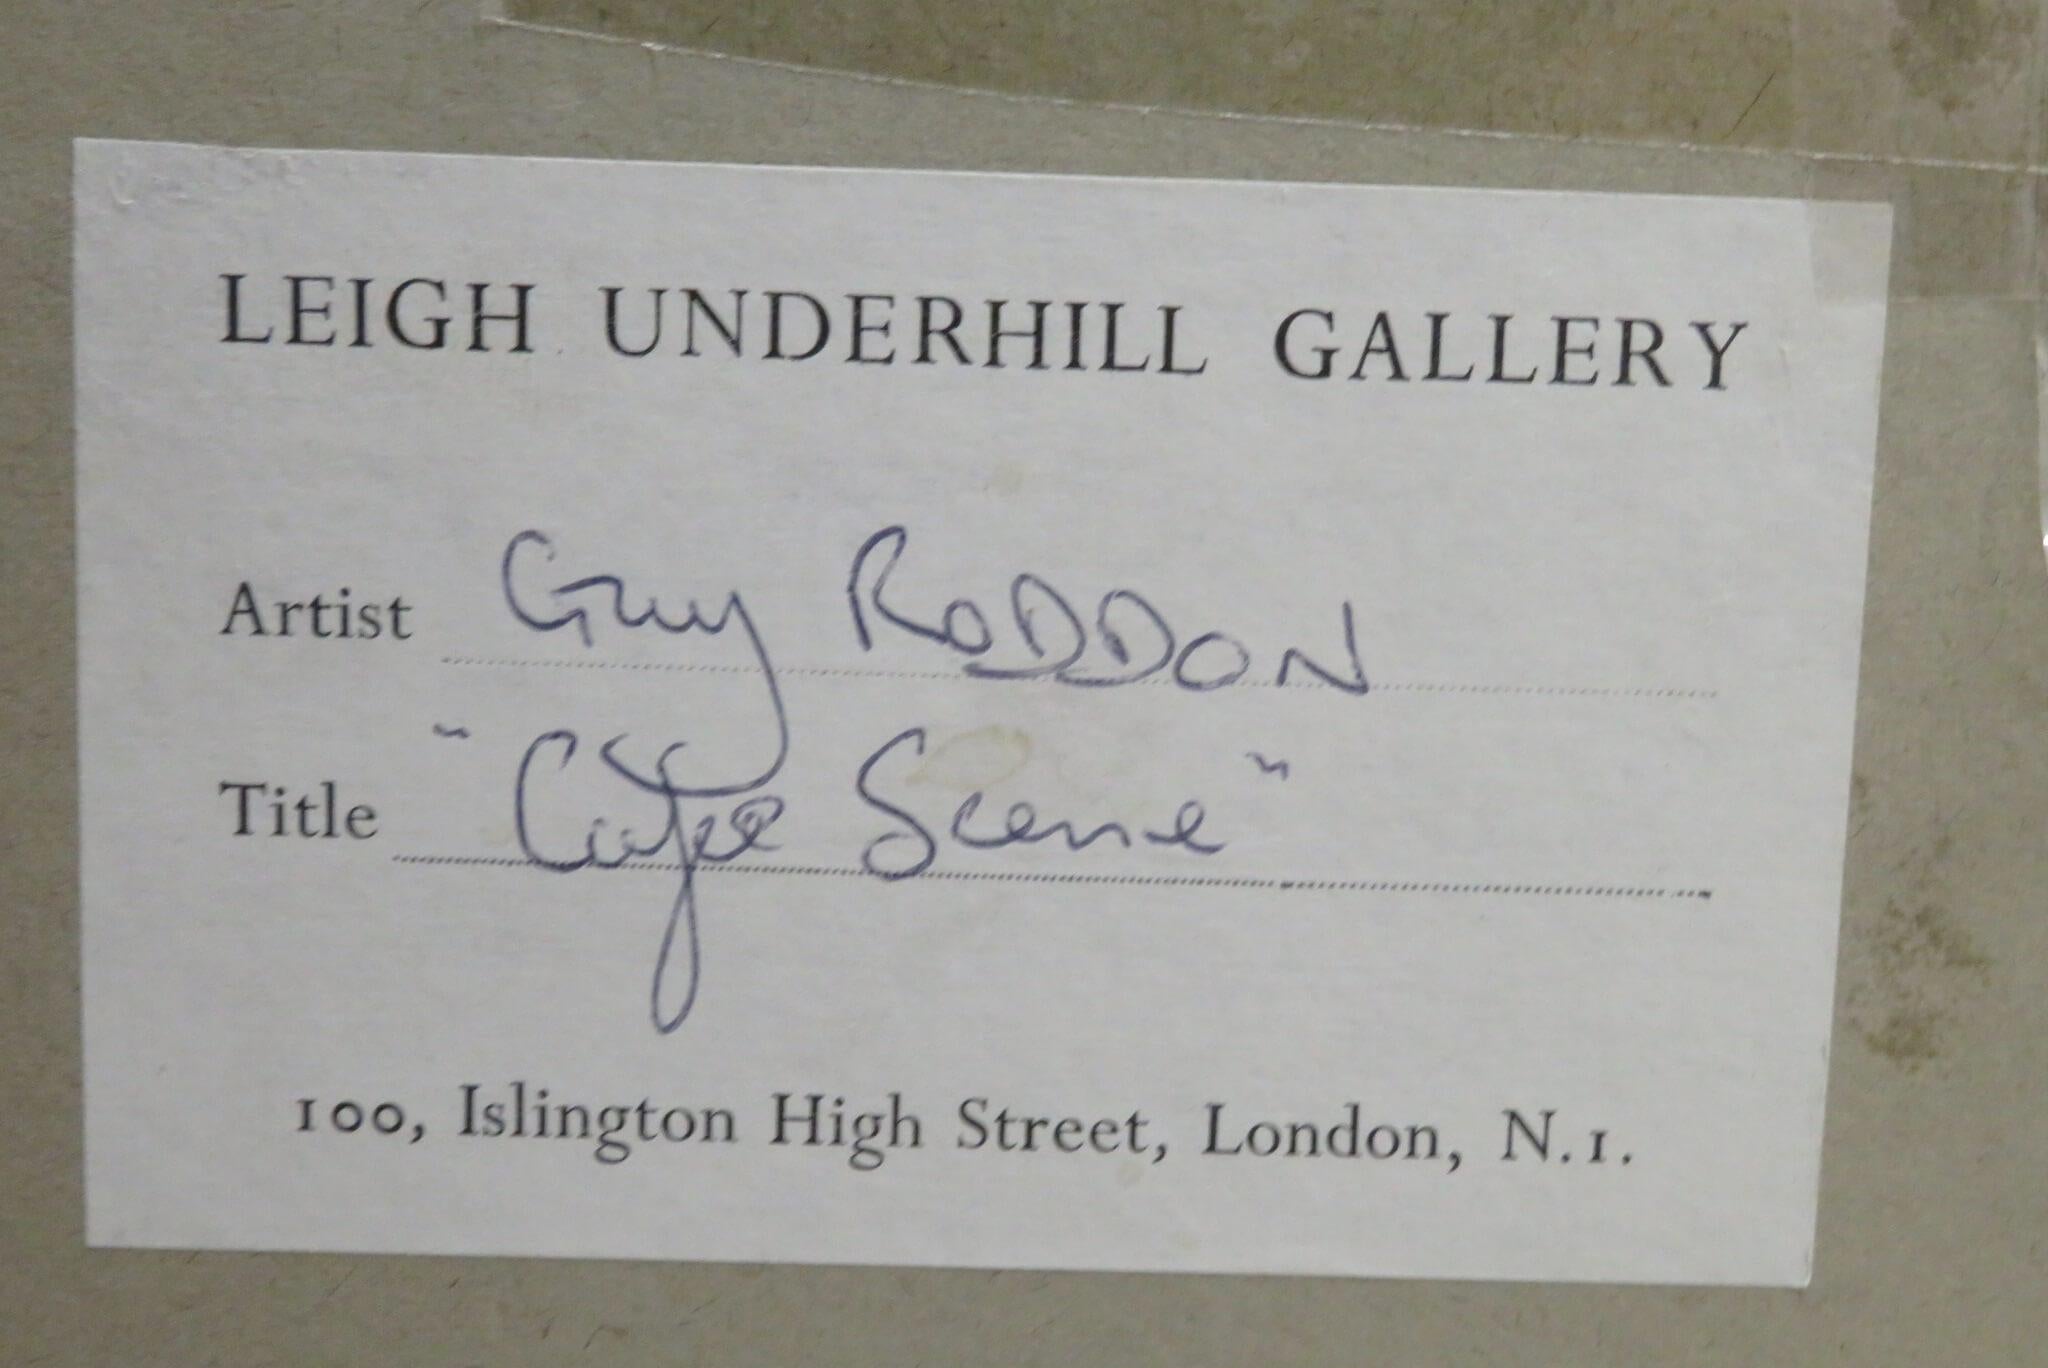 LEIGH UNDERHILL GALLERY
Artist Guy RODDON
Title "Cafe Scene"
100, Islington High Street, London, N.1.